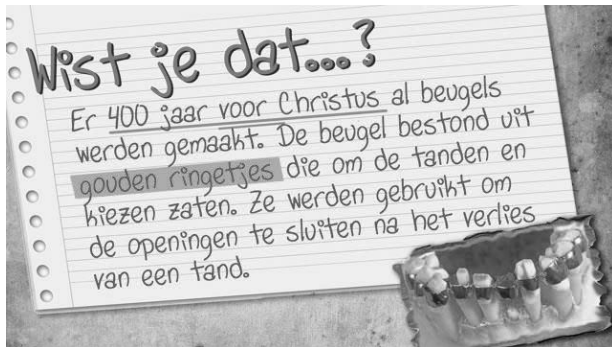 Wist je dat...?
Er 400 jaar voor Christus al beugels
werden gemaakt. De beugel bestond uit
gouden ringetjes die om de tanden en
kiezen zaten. Ze werden gebruikt om
de openingen te sluiten na het verlies
van een tand.